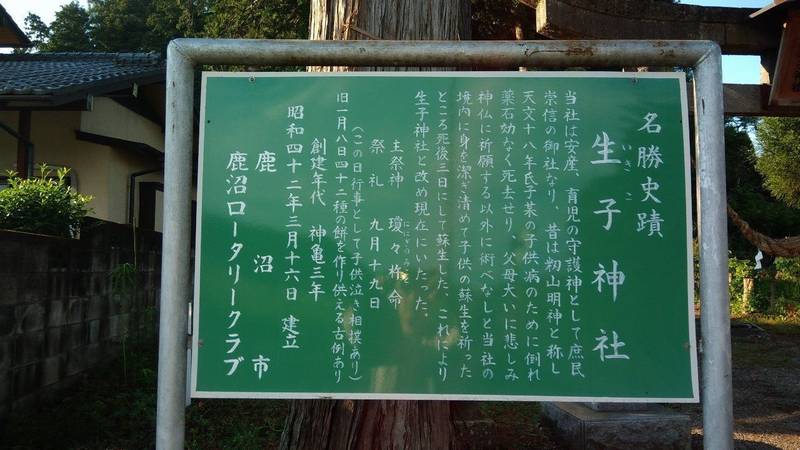 名勝史蹟
生子神社
いきこ
当社は安産、育児の守護神として庶民
崇信の御社なり、昔は籾山明神と称し
天文十八年氏子某の子供病のために倒れ
薬石効なく死去せり、父母大いに悲しみ
神仏に祈願する以外に術べなしと当社の
境内に身を潔ぎ清めて子供の蘇生を祈った
ところ死後三日にして蘇生した、これにより
生子神社と改め現在にいたった、
主祭神 瓊々杵命
ににぎのみこと
祭礼 九月十九日
(この日行事として子供泣き相撲あり)
旧一月八日四十二種の餅を作り供える古例あり
創建年代 神亀三年
昭和四十二年三月十六日 建立
鹿沼市
鹿沼ロータリークラブ